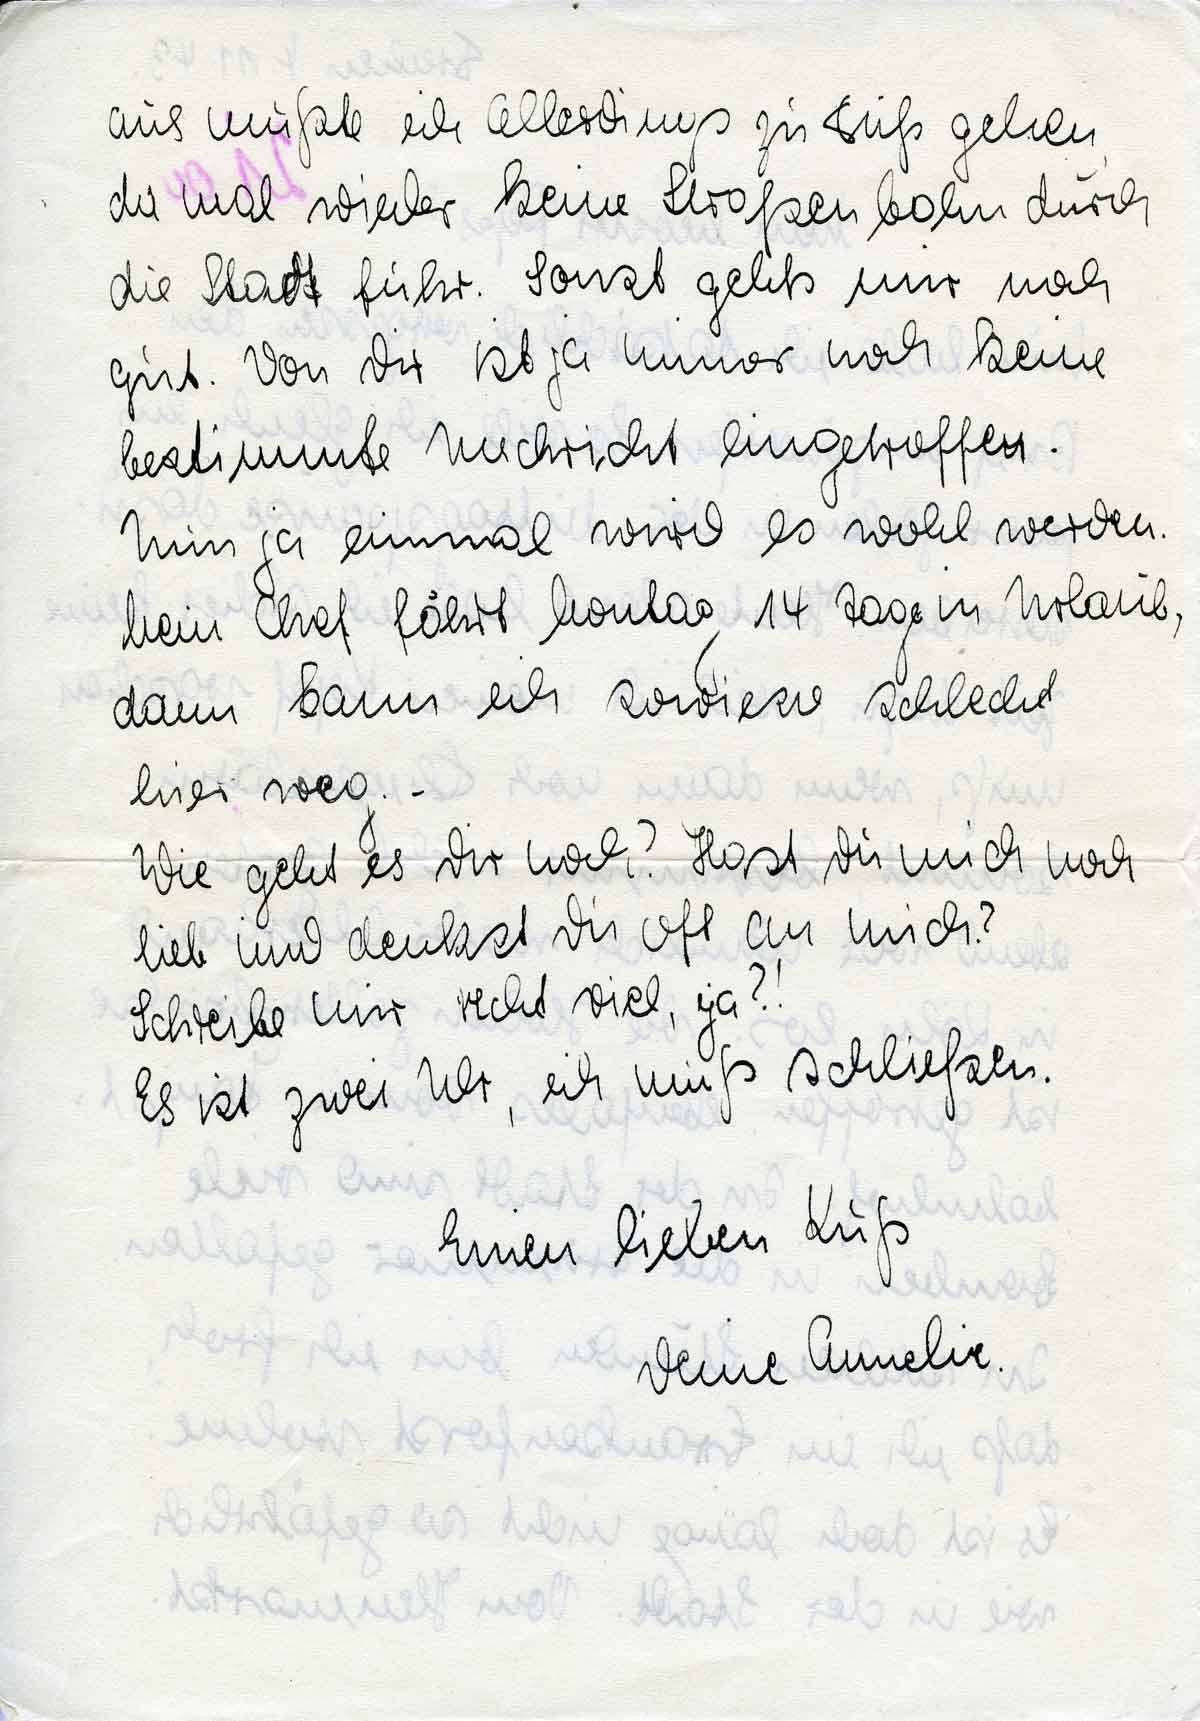 aus mußte ich allerdings zu Fuß gehen,
da mal wieder keine Straßenbahn durch
die Stadt fuhr. Sonst gehts mir noch
gut. Von Dir ist ja immer noch keine
bestimmte Nachricht eingetroffen.
Nun ja einmal wird es wohl werden.
Mein Chef fährt Montag 14 Tage in Urlaub,
dann kann ich sowieso schlecht
hier weg. -
Wie geht es Dir noch? Hast Du mich noch
lieb und denkst Du oft an mich?
Schreibe mir recht viel, ja?!
Es ist zwei Uhr, ich muß schließen.
Einen lieben Kuß
Deine Annelie.